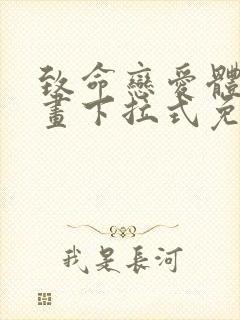 致命戀愛體
畫下拉式免
我是長河